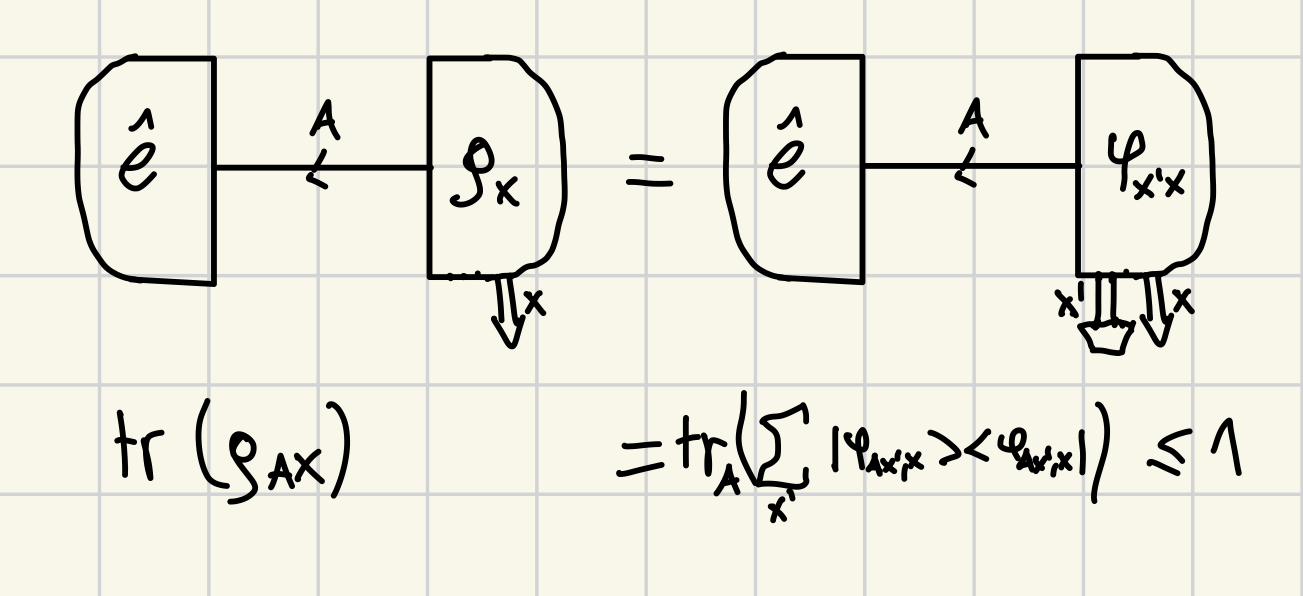 ê A ρ_X = ê A φ_X'X
X X' X
tr(ρ_AX) = tr_A(∑_x' |φ_AX',X><φ_AX',X|) ≤ 1